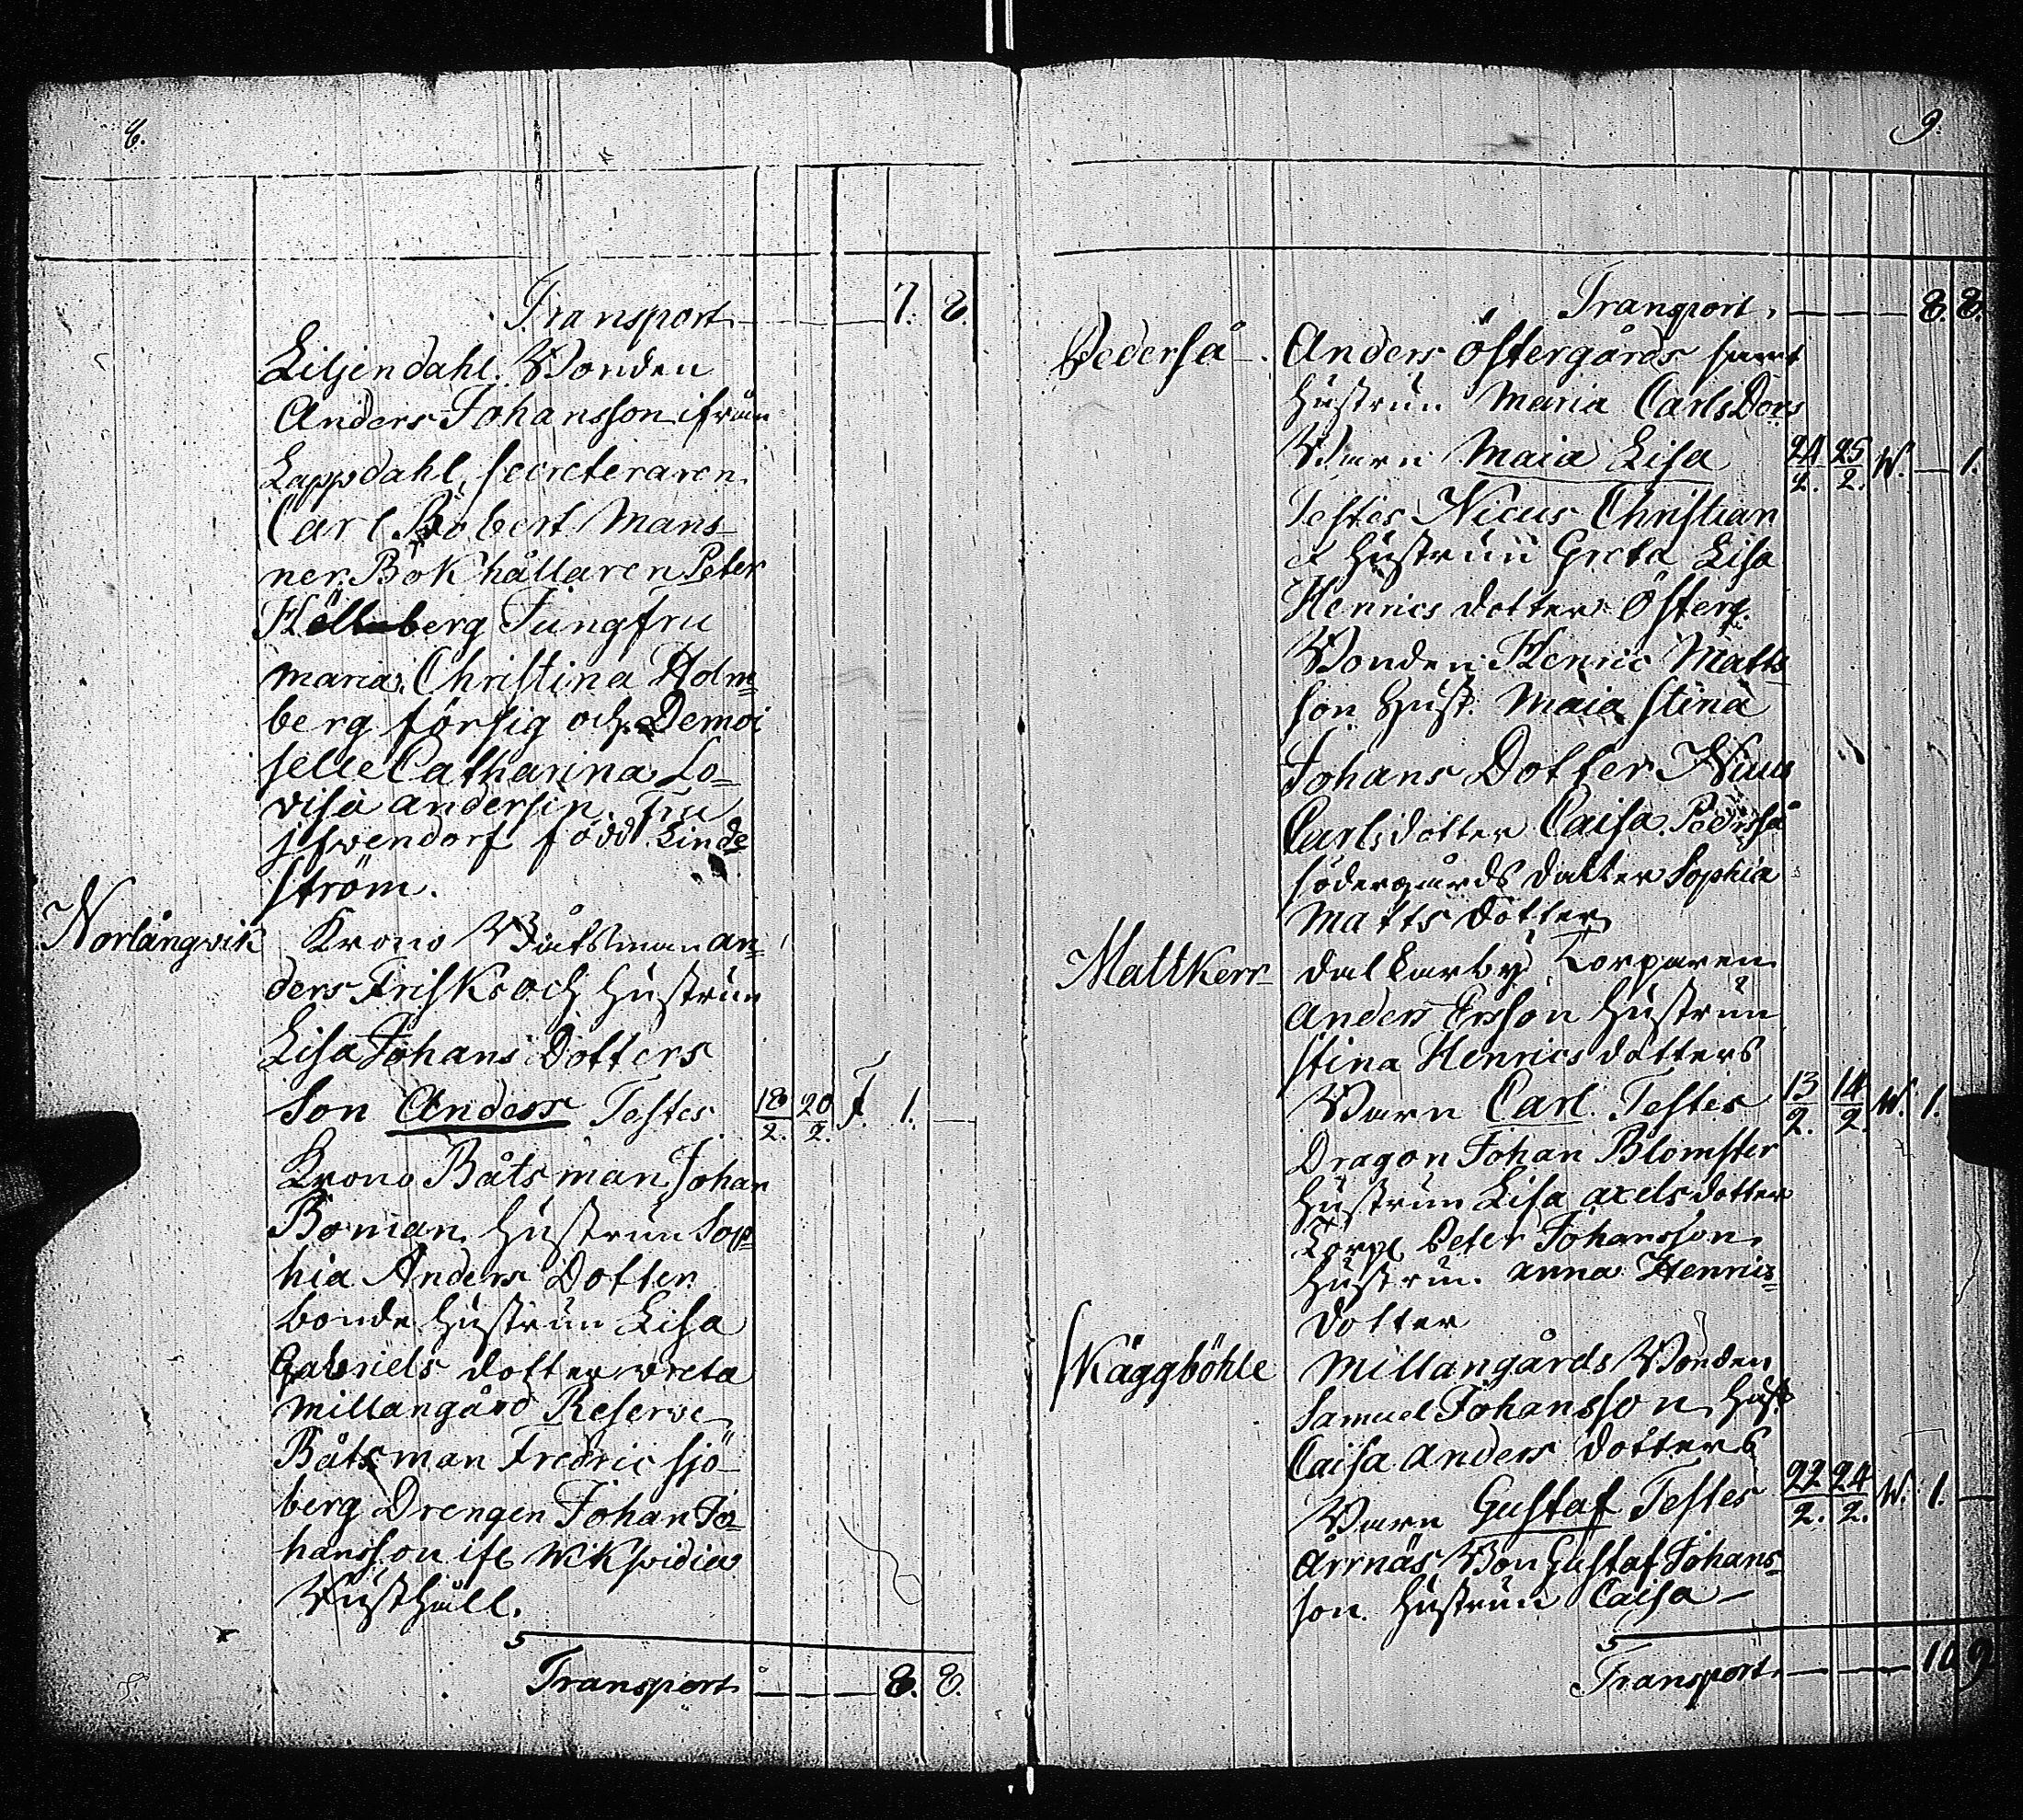 8.
Transport 7. 8.
Liljendahl. Bonden
Anders Johansson ifrån
Lappdahl, secreteraren
Carl Robert Mans-
ner. Bokhållaren Peter
Hällnberg Jungfru
maria Christina Holm=
berg försig och Demoi
selle Catharina Lo=
visa andersin. Fru
von född Linde
ström.
Norlångvik Krono Båtsman an=
ders Frisks och hustrun
Lisa Johans Dotters
Son Anders Testes 18/2. 20/2. F. 1. —
Krono Båtsman Johan
Boman hustrun Sop=
hia Anders Dotter
bonde hustrun Lisa
Gabriels dotter
millangård Reserve
Båtsman Fredric sjö-
berg Drengen Johan Jo=
hansson
Rusthåll.
Transport 8. 8.
9.
Transport. 8. 8.
Pederså. Anders östergårds samt
hustrun Maria Carls Dors
Barn Maia Lisa 24/2. 25/2. W. — 1.
Testes Christian
et hustrun Greta Lisa
Henrics dotter österg.
Bonden Henric Matts
son hust. Maia stina
Johans Dotter
Carlsdotter Caisa. Pederså
södergårds dotter Sophia
Matts dotter
Mattkerr dalkarby Torparen
anders Ersson hustrun
stina Henrics dotters
Barn Carl. Testes 13/2. 14/2. W. 1.
Dragon Johan Blomster
hustrun Lisa axelsdotter
Torp. Peter Johansson
hustrun. anna Henrics
dotter
Skäggböhle millangårds Bonden
Samuel Johansson, hust
Caisa anders dotters
Barn Gustaf Testes 22/2. 24/2. W. 1. —
Arrnäs Bon Gustaf Johans=
son hustrun Caisa —
Transport. 10 9